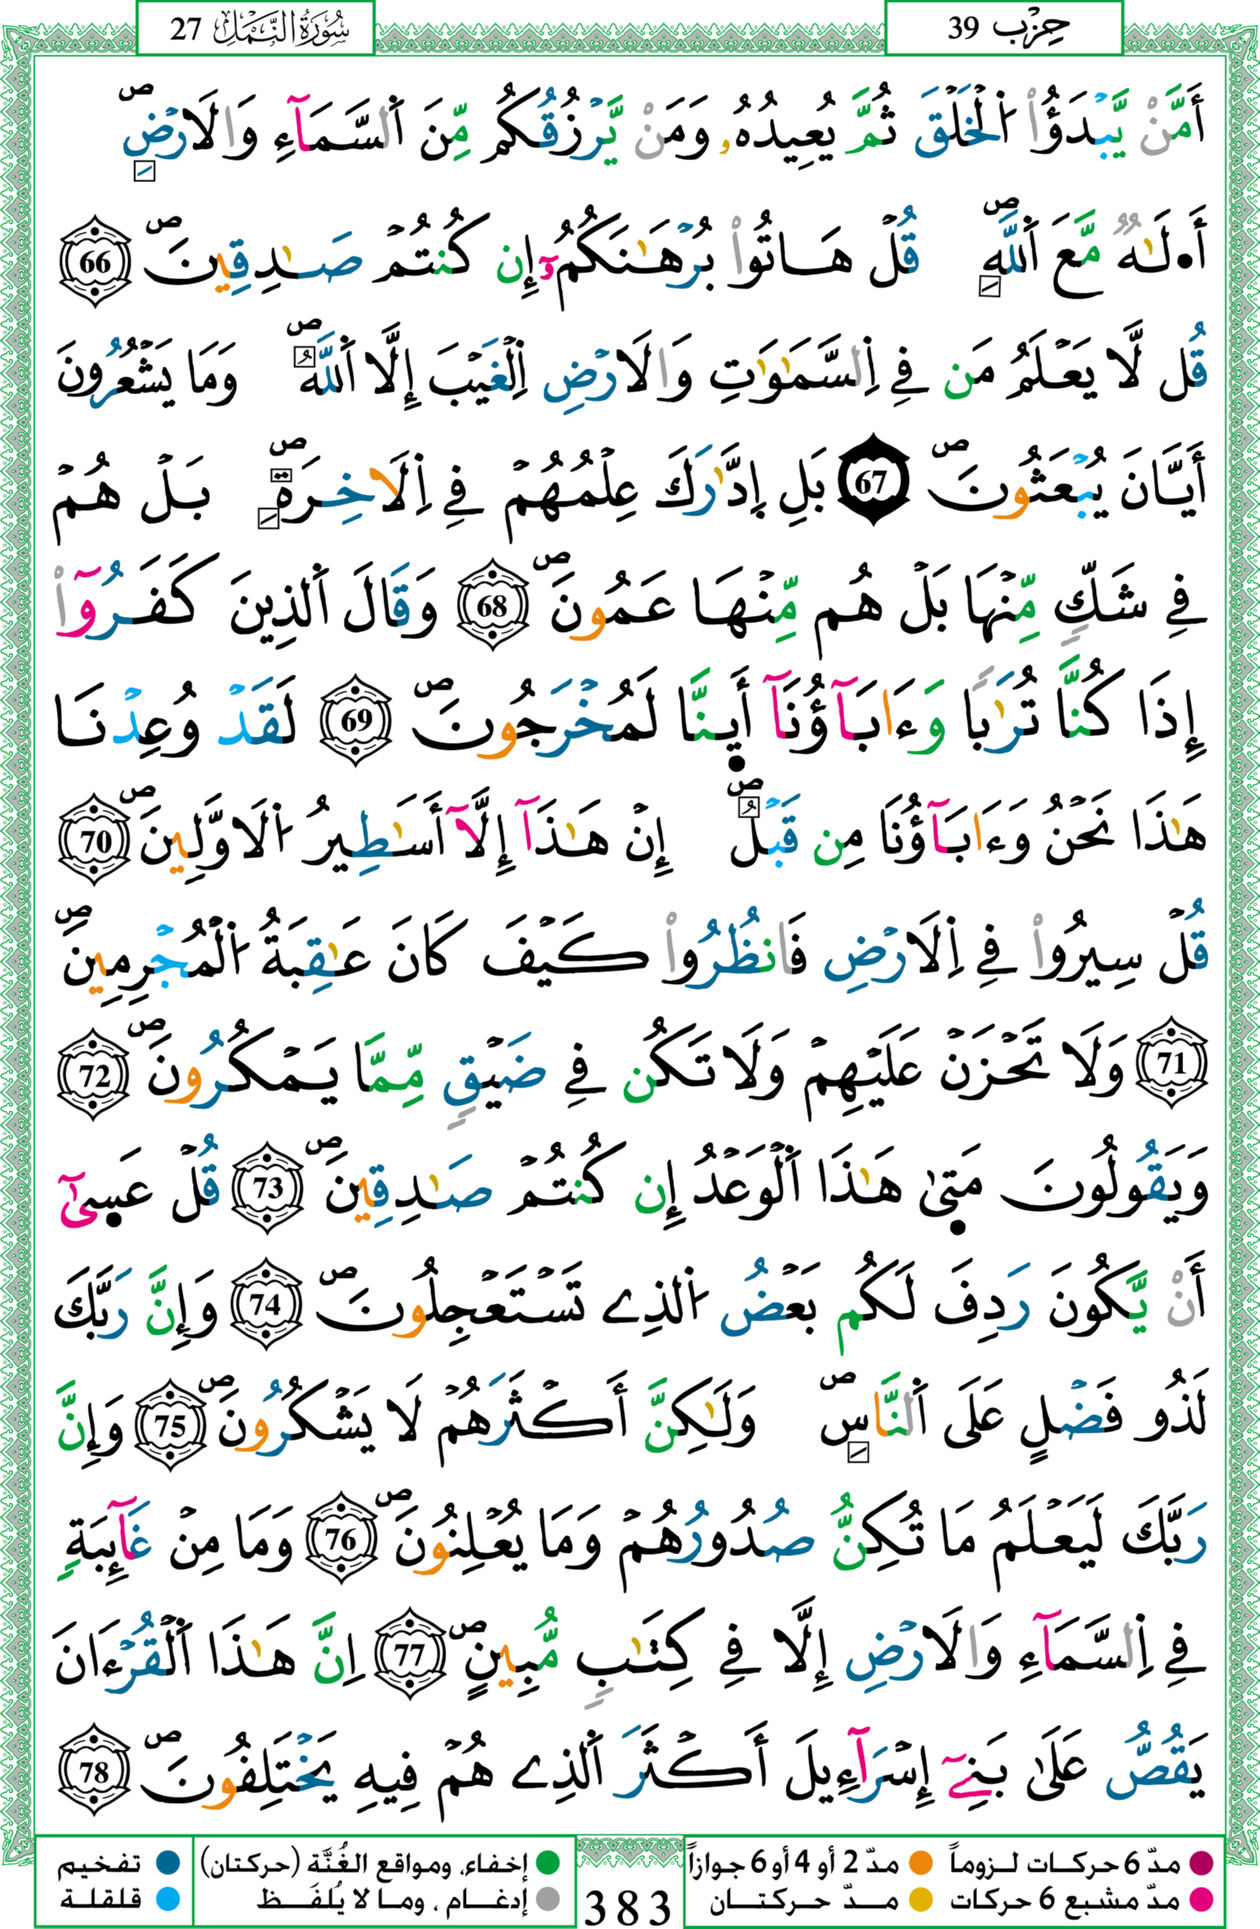 حِزْب 39
سُورَةُ النَّمْلِ 27
أَمَّنْ يَّبْدَؤُاْ اَلْخَلْقَ ثُمَّ يُعِيدُهُۥ وَمَنْ يَّرْزُقُكُم مِّنَ اَلسَّمَآءِ وَالَارْضِۖ
أَ•لَٰهٞ مَّعَ اَللَّهِۖ قُلْ هَاتُواْ بُرْهَٰنَكُمُۥٓ إِن كُنتُمْ صَٰدِقِينَۖ 66
قُل لَّا يَعْلَمُ مَن فِے اِلسَّمَٰوَٰتِ وَالَارْضِ اِلْغَيْبَ إِلَّا اَللَّهُۖ وَمَا يَشْعُرُونَ
أَيَّانَ يُبْعَثُونَۖ 67 بَلِ اِدَّٰرَكَ عِلْمُهُمْ فِے اِلَاخِرَةِۖ بَلْ هُمْ
فِے شَكّٖ مِّنْهَا بَلْ هُم مِّنْهَا عَمُونَۖ 68 وَقَالَ اَلذِينَ كَفَرُوٓاْ
إِذَا كُنَّا تُرَٰباٗ وَءَابَآؤُنَآ أَي۪نَّا لَمُخْرَجُونَۖ 69 لَقَدْ وُعِدْنَا
هَٰذَا نَحْنُ وَءَابَآؤُنَا مِن قَبْلُۖ إِنْ هَٰذَآ إِلَّآ أَسَٰطِيرُ اُلَاوَّلِينَۖ 70
قُلْ سِيرُواْ فِے اِلَارْضِ فَانظُرُواْ كَيْفَ كَانَ عَٰقِبَةُ اُلْمُجْرِمِينَۖ
71 وَلَا تَحْزَنْ عَلَيْهِمْ وَلَا تَكُن فِے ضَيْقٖ مِّمَّا يَمْكُرُونَۖ 72
وَيَقُولُونَ مَت۪ىٰ هَٰذَا اَلْوَعْدُ إِن كُنتُمْ صَٰدِقِينَۖ 73 قُلْ عَس۪ىٰٓ
أَنْ يَّكُونَ رَدِفَ لَكُم بَعْضُ اُلذِے تَسْتَعْجِلُونَۖ 74 وَإِنَّ رَبَّكَ
لَذُو فَضْلٍ عَلَى اَلنَّاسِۖ وَلَٰكِنَّ أَكْثَرَهُمْ لَا يَشْكُرُونَۖ 75 وَإِنَّ
رَبَّكَ لَيَعْلَمُ مَا تُكِنُّ صُدُورُهُمْ وَمَا يُعْلِنُونَۖ 76 وَمَا مِنْ غَآئِبَةٖ
فِے اِلسَّمَآءِ وَالَارْضِ إِلَّا فِے كِتَٰبٖ مُّبِينٍۖ 77 اِنَّ هَٰذَا اَلْقُرْءَانَ
يَقُصُّ عَلَىٰ بَنِےٓ إِسْرَآءِيلَ أَكْثَرَ اَلذِے هُمْ فِيهِ يَخْتَلِفُونَۖ 78
مدّ 6 حركات لـزوماً مدّ 2 أو 4 أو 6 جوازاً إخفاء، ومواقع الغُنَّة (حركتان) تفخيم
مدّ مشبع 6 حركات مــدّ حــركتــان 383 إدغــام ، ومـا لا يُلفَـظ قلقلة